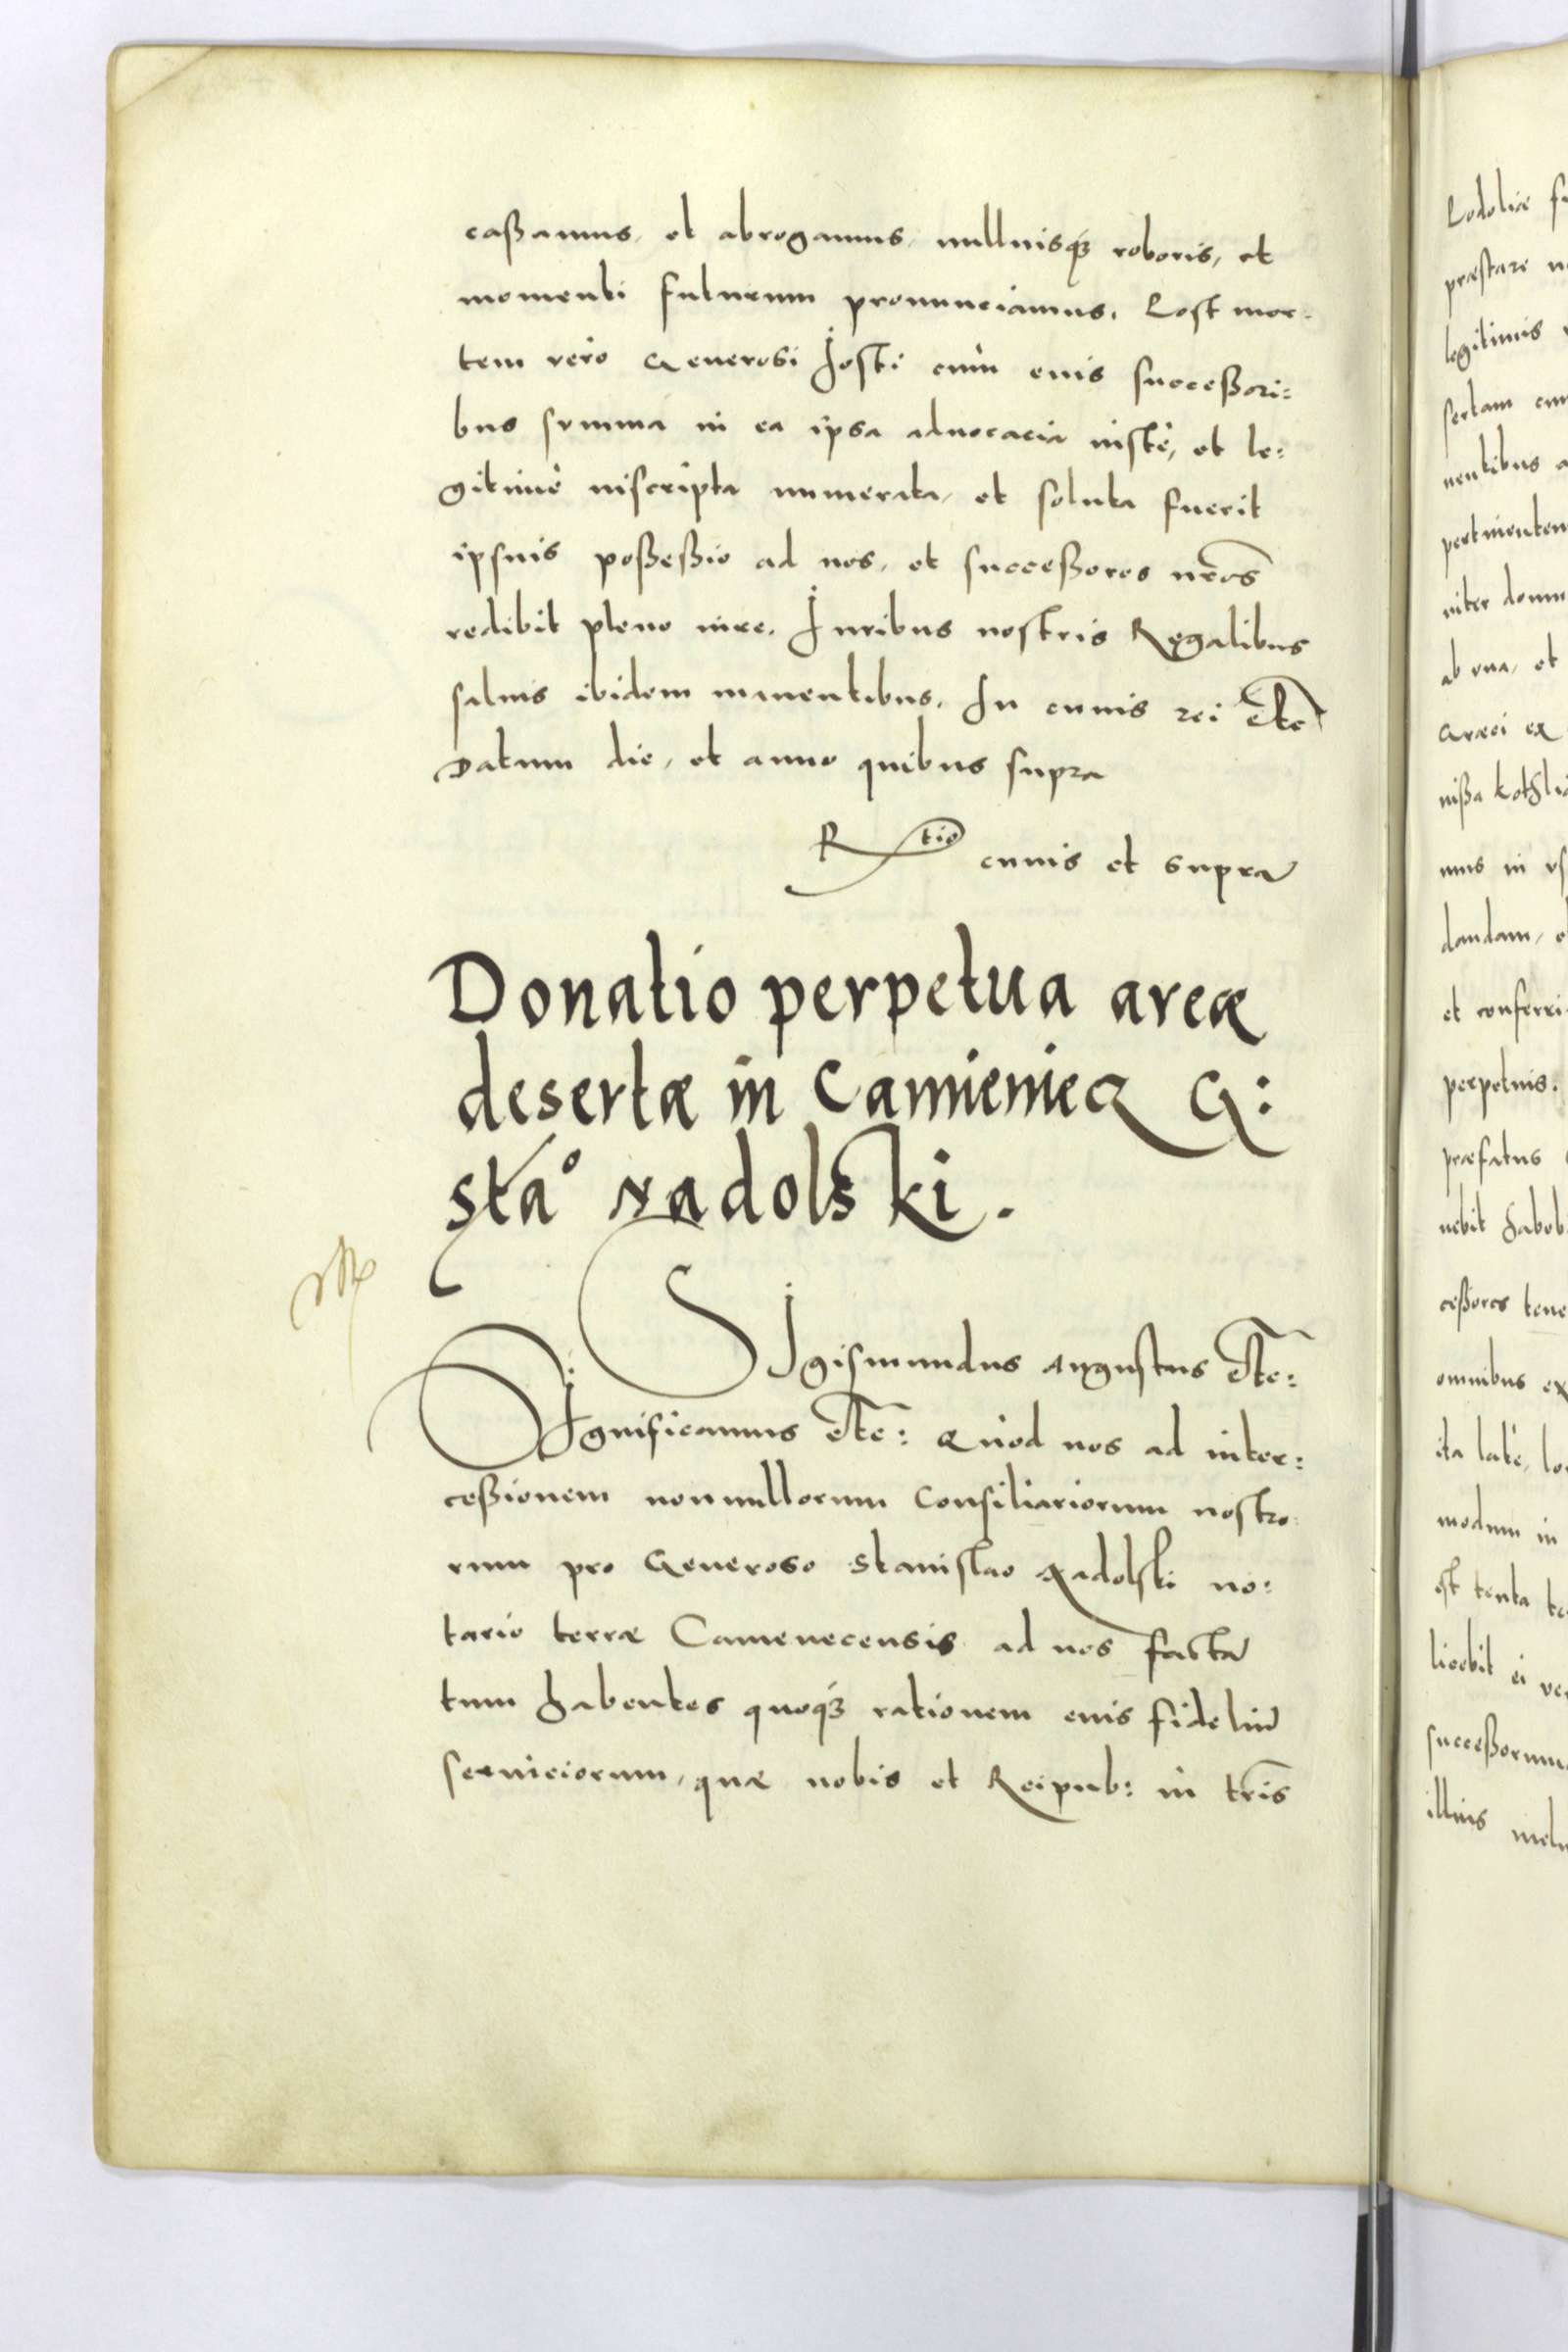 caßamus, et abrogamus, nulliusq₃ roboris, et
momenti futurum pronunciamus. Post mor-
tem verò Generosi Josti cum eius succeßori=
bus summa in ea ipsa aduocacia iustè, et le=
gitimè inscripta numerata, et soluta fuerit
ipsius poßeßio ad nos, et succeßores nr̃os
redibit pleno iure. Iuribus nostris Regalibus
saluis ibidem manentibus. In cuius rei etc̃
Datum die, et anno quibus supra
Rtio cuius et supra
Donatio perpetua areæ
desertæ in Camieniecz G:
Stao Nadolski.
SIgismundus Augustus etc̃:
SIgnificamus etc̃: Quod nos ad inter=
ceßionem nonnullorum Consiliariorum nostro
rum pro Generoso Stanislao Nadolski no=
tario terræ Camenecensis ad nos factã
tum habentes quoq₃ rationem eius fideliũ
seruiciorum, quæ nobis et Reipub: in tr̃is
Podoliæ
præstare
legitimis
sertam
nentibus
inter
ab una, et
Græci ex
nus in
dandam,
et conferri
perpetuis.
præfatus
nebit habeb
ceßores tene
omnibus ex
ita latè,
modum in
est tenta
licebit ei
succeßorum
illius